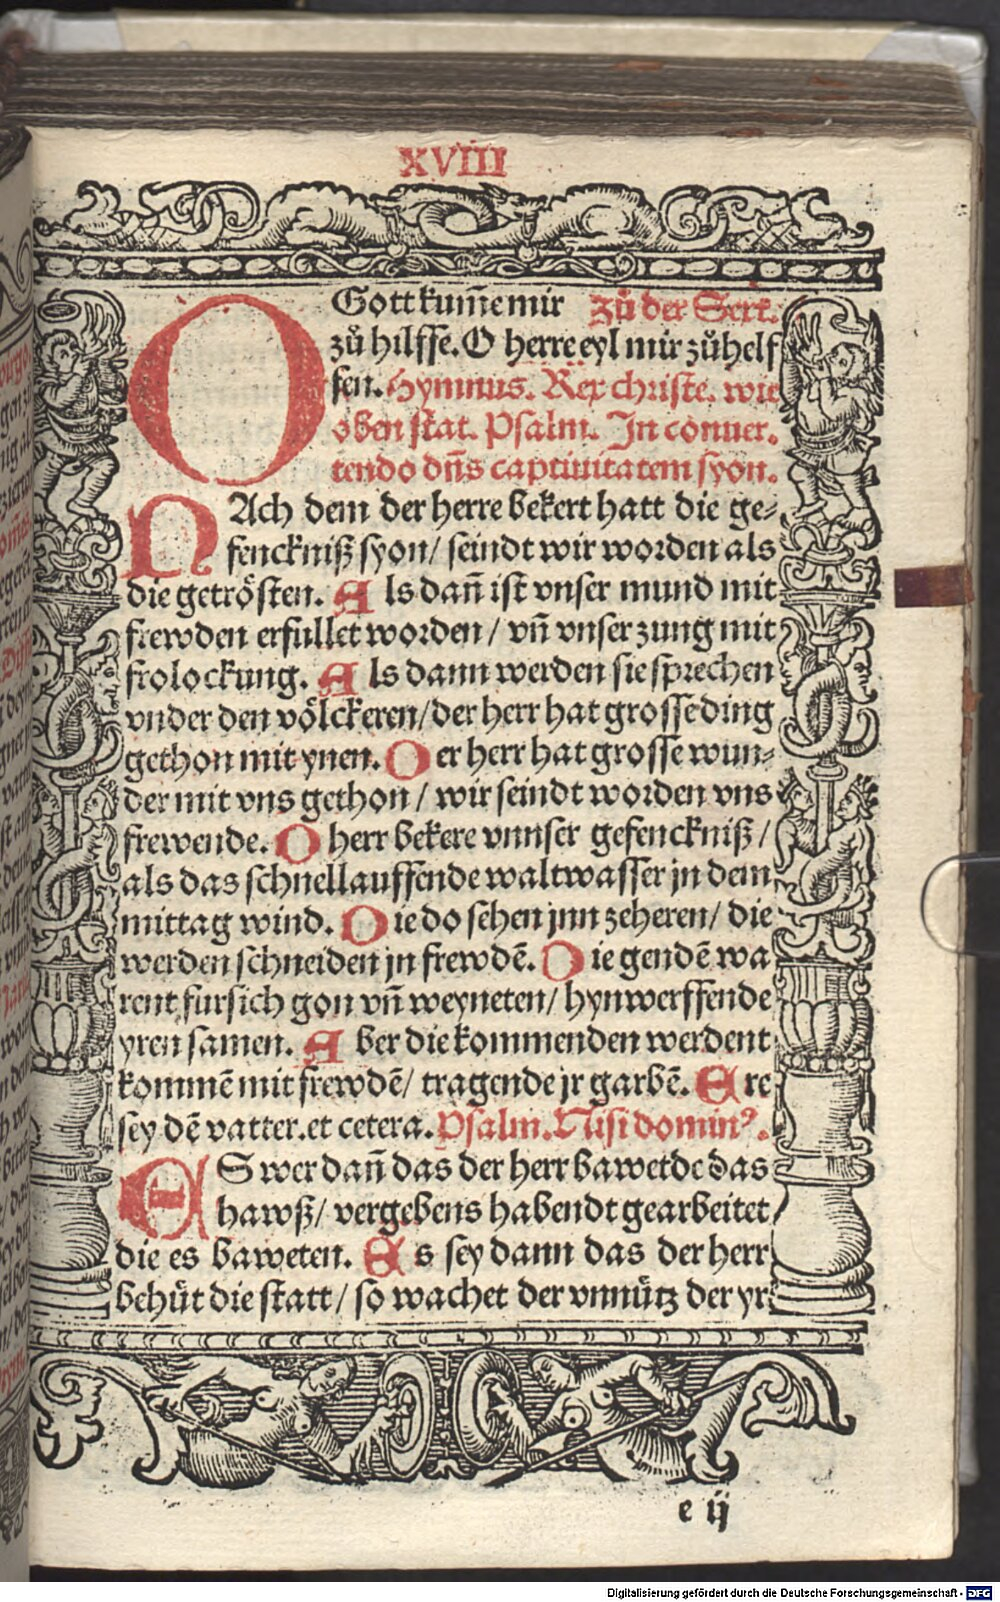 XVIII
O Gott kum̃e mir zů der Sext.
zů hilffe. O herre eyl mir zů helf
fen. Hymnus. Rex christe. wie
oben stat. Psalm. In conuer.
tendo dñs captiuitatem syon.
NAch dem der herre bekert hatt die ge⸗
fenckniß syon/ seindt wir worden als
die getrösten. Als dañ ist vnser mund mit
frewden erfullet worden/ vñ vnser zung mit
frolockung. Als dann werden sie sprechen
vnder den völckeren/der herr hat grosse ding
gethon mit ynen. Oer herr hat grosse wun⸗
der mit vns gethon/ wir seindt worden vns
frewende. O herr bekere vnnser gefenckniß/
als das schnellauffende waltwasser jn dem
mittag wind. Oie do sehen jnn zeheren/ die
werden schneiden jn frewdē. Oie gendē wa
rent fursich gon vñ weyneten/ hynwerffende
yren samen. Aber die kommenden werdent
kommē mit frewdē/ tragende jr garbē. Ere
sey dē vatter. et cetera. Psalm. Nisi dominꝰ.
ES wer dañ das der herr bawetde das
hawß/ vergebens habendt gearbeitet
die es baweten. Es sey dann das der herr
behüt die statt/ so wachet der vnnütz der yr
e ij
Digitalisierung gefördert durch die Deutsche Forschungsgemeinschaft - DFG